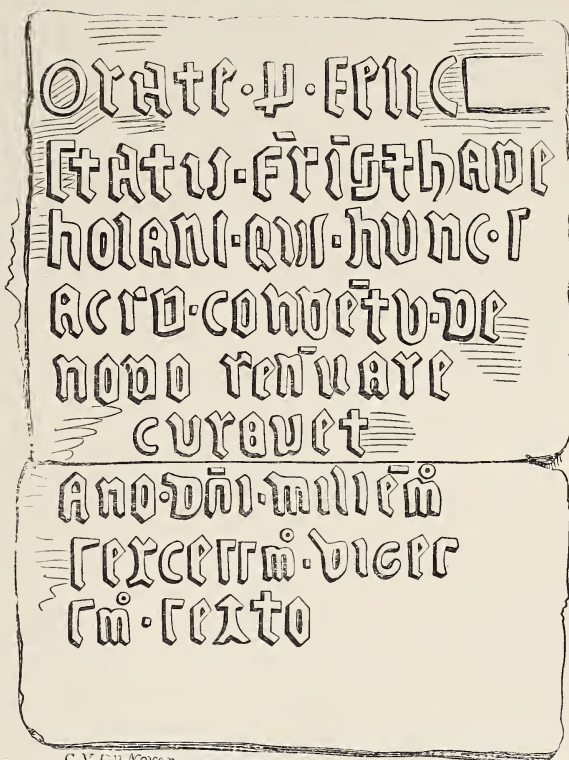 Orate·p·felic
statu·Fr̄is̄ thade
holani·qui·hunc·s
acru·conuētu·de
nouo ren̄uare
curauet
Ano·dn̄i·millēm̊
sexcessm̊·uiges
sm̊·sexto
G.V. Du Noyer